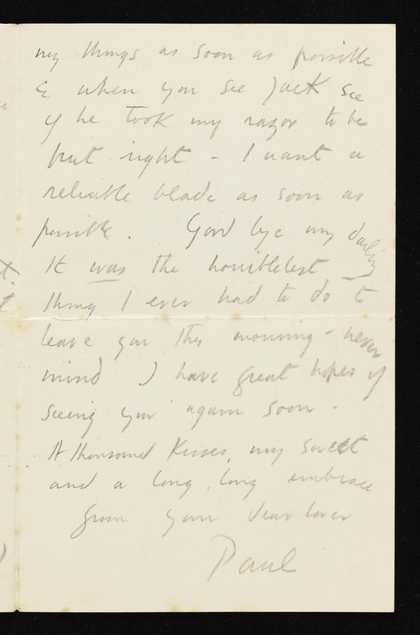 my things as soon as possible
& when you see Jack see
if he took my razor to be
put right - I want a
reliable blade as soon as
possible. Good bye my darling
It was the horriblest
thing I ever had to do to
leave you this morning - never
mind I have great hopes of
seeing you again soon.
A thousand kisses, my sweet
and a long, long embrace
from your dear lover
Paul